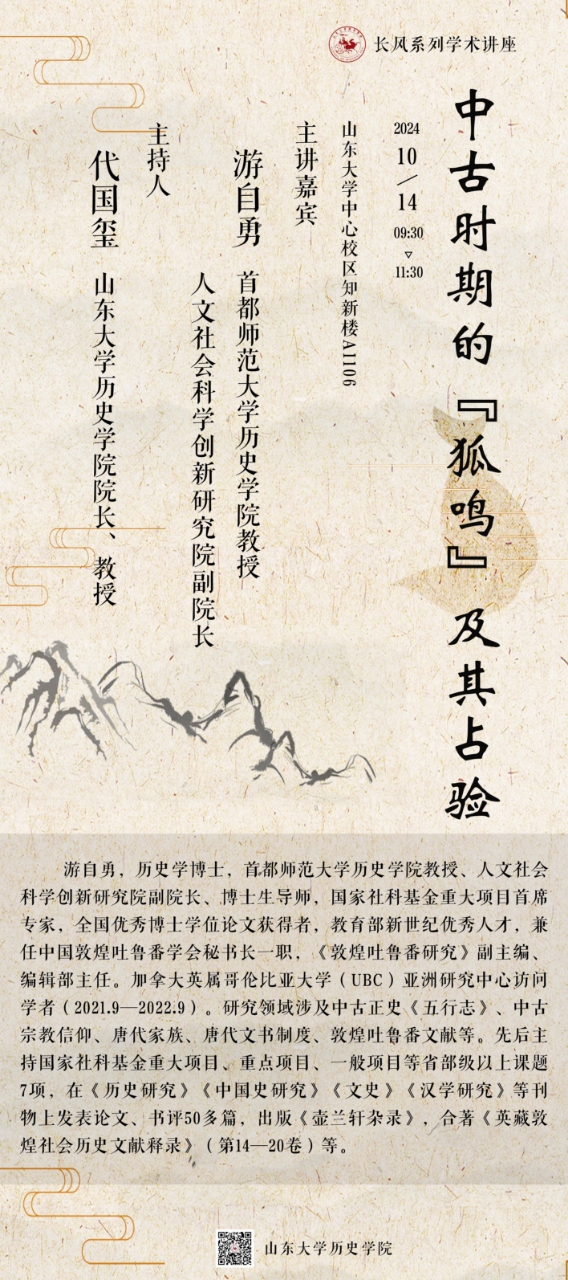 长风系列学术讲座
中古时期的『狐鸣』及其占验
2024
10
14
09:30
11:30
山东大学中心校区知新楼A1106
主讲嘉宾
游自勇 首都师范大学历史学院教授
人文社会科学创新研究院副院长
主持人
代国玺 山东大学历史学院院长、教授
游自勇，历史学博士，首都师范大学历史学院教授、人文社会
科学创新研究院副院长、博士生导师，国家社科基金重大项目首席
专家，全国优秀博士学位论文获得者，教育部新世纪优秀人才，兼
任中国敦煌吐鲁番学会秘书长一职，《敦煌吐鲁番研究》副主编、
编辑部主任。加拿大英属哥伦比亚大学（UBC）亚洲研究中心访问
学者（2021.9—2022.9）。研究领域涉及中古正史《五行志》、中古
宗教信仰、唐代家族、唐代文书制度、敦煌吐鲁番文献等。先后主
持国家社科基金重大项目、重点项目、一般项目等省部级以上课题
7项，在《历史研究》《中国史研究》《文史》《汉学研究》等刊
物上发表论文、书评50多篇，出版《壶兰轩杂录》，合著《英藏敦
煌社会历史文献释录》（第14—20卷）等。
山东大学历史学院